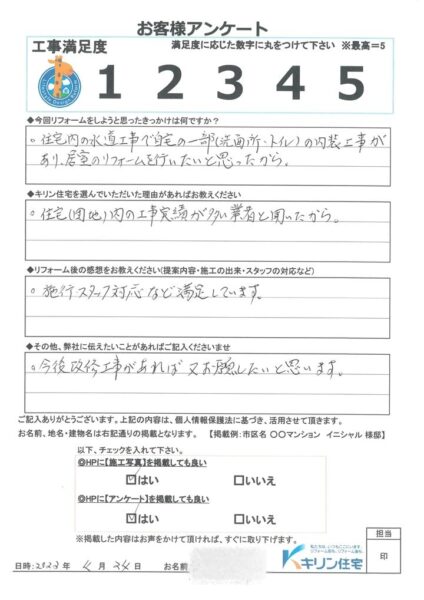 お客様アンケート
工事満足度
満足度に応じた数字に丸をつけて下さい ※最高=5
1 2 3 4 5
◆今回リフォームをしようと思ったきっかけは何ですか?
○住宅内の水道工事で自宅の一部(洗面所・トイレ)の内装工事が
あり、居室のリフォームを行いたいと思ったから。
◆キリン住宅を選んでいただいた理由があればお教えください
○住宅(団地)内の工事実績が多い業者と聞いたから。
◆リフォーム後の感想をお教えください(提案内容・施工の出来・スタッフの対応など)
○施行スタッフ対応など満足しています。
◆その他、弊社に伝えたいことがあればご記入くださいませ
○今後改修工事があれば又お願したいと思います。
ご記入ありがとうございます。上記の内容は、個人情報保護法に基づき、活用させて頂きます。
お名前、地名・建物名は右記通りの掲載となります。 【掲載例:市区名 〇〇マンション イニシャル 様邸】
以下、チェックを入れて下さい。
◎HPに【施工写真】を掲載しても良い
☑はい □いいえ
◎HPに【アンケート】を掲載しても良い
☑はい □いいえ
※掲載した内容はお声をかけて頂ければ、すぐに取り下げます。
担当
印
キリン住宅
日時:2022年 月 24日 お名前